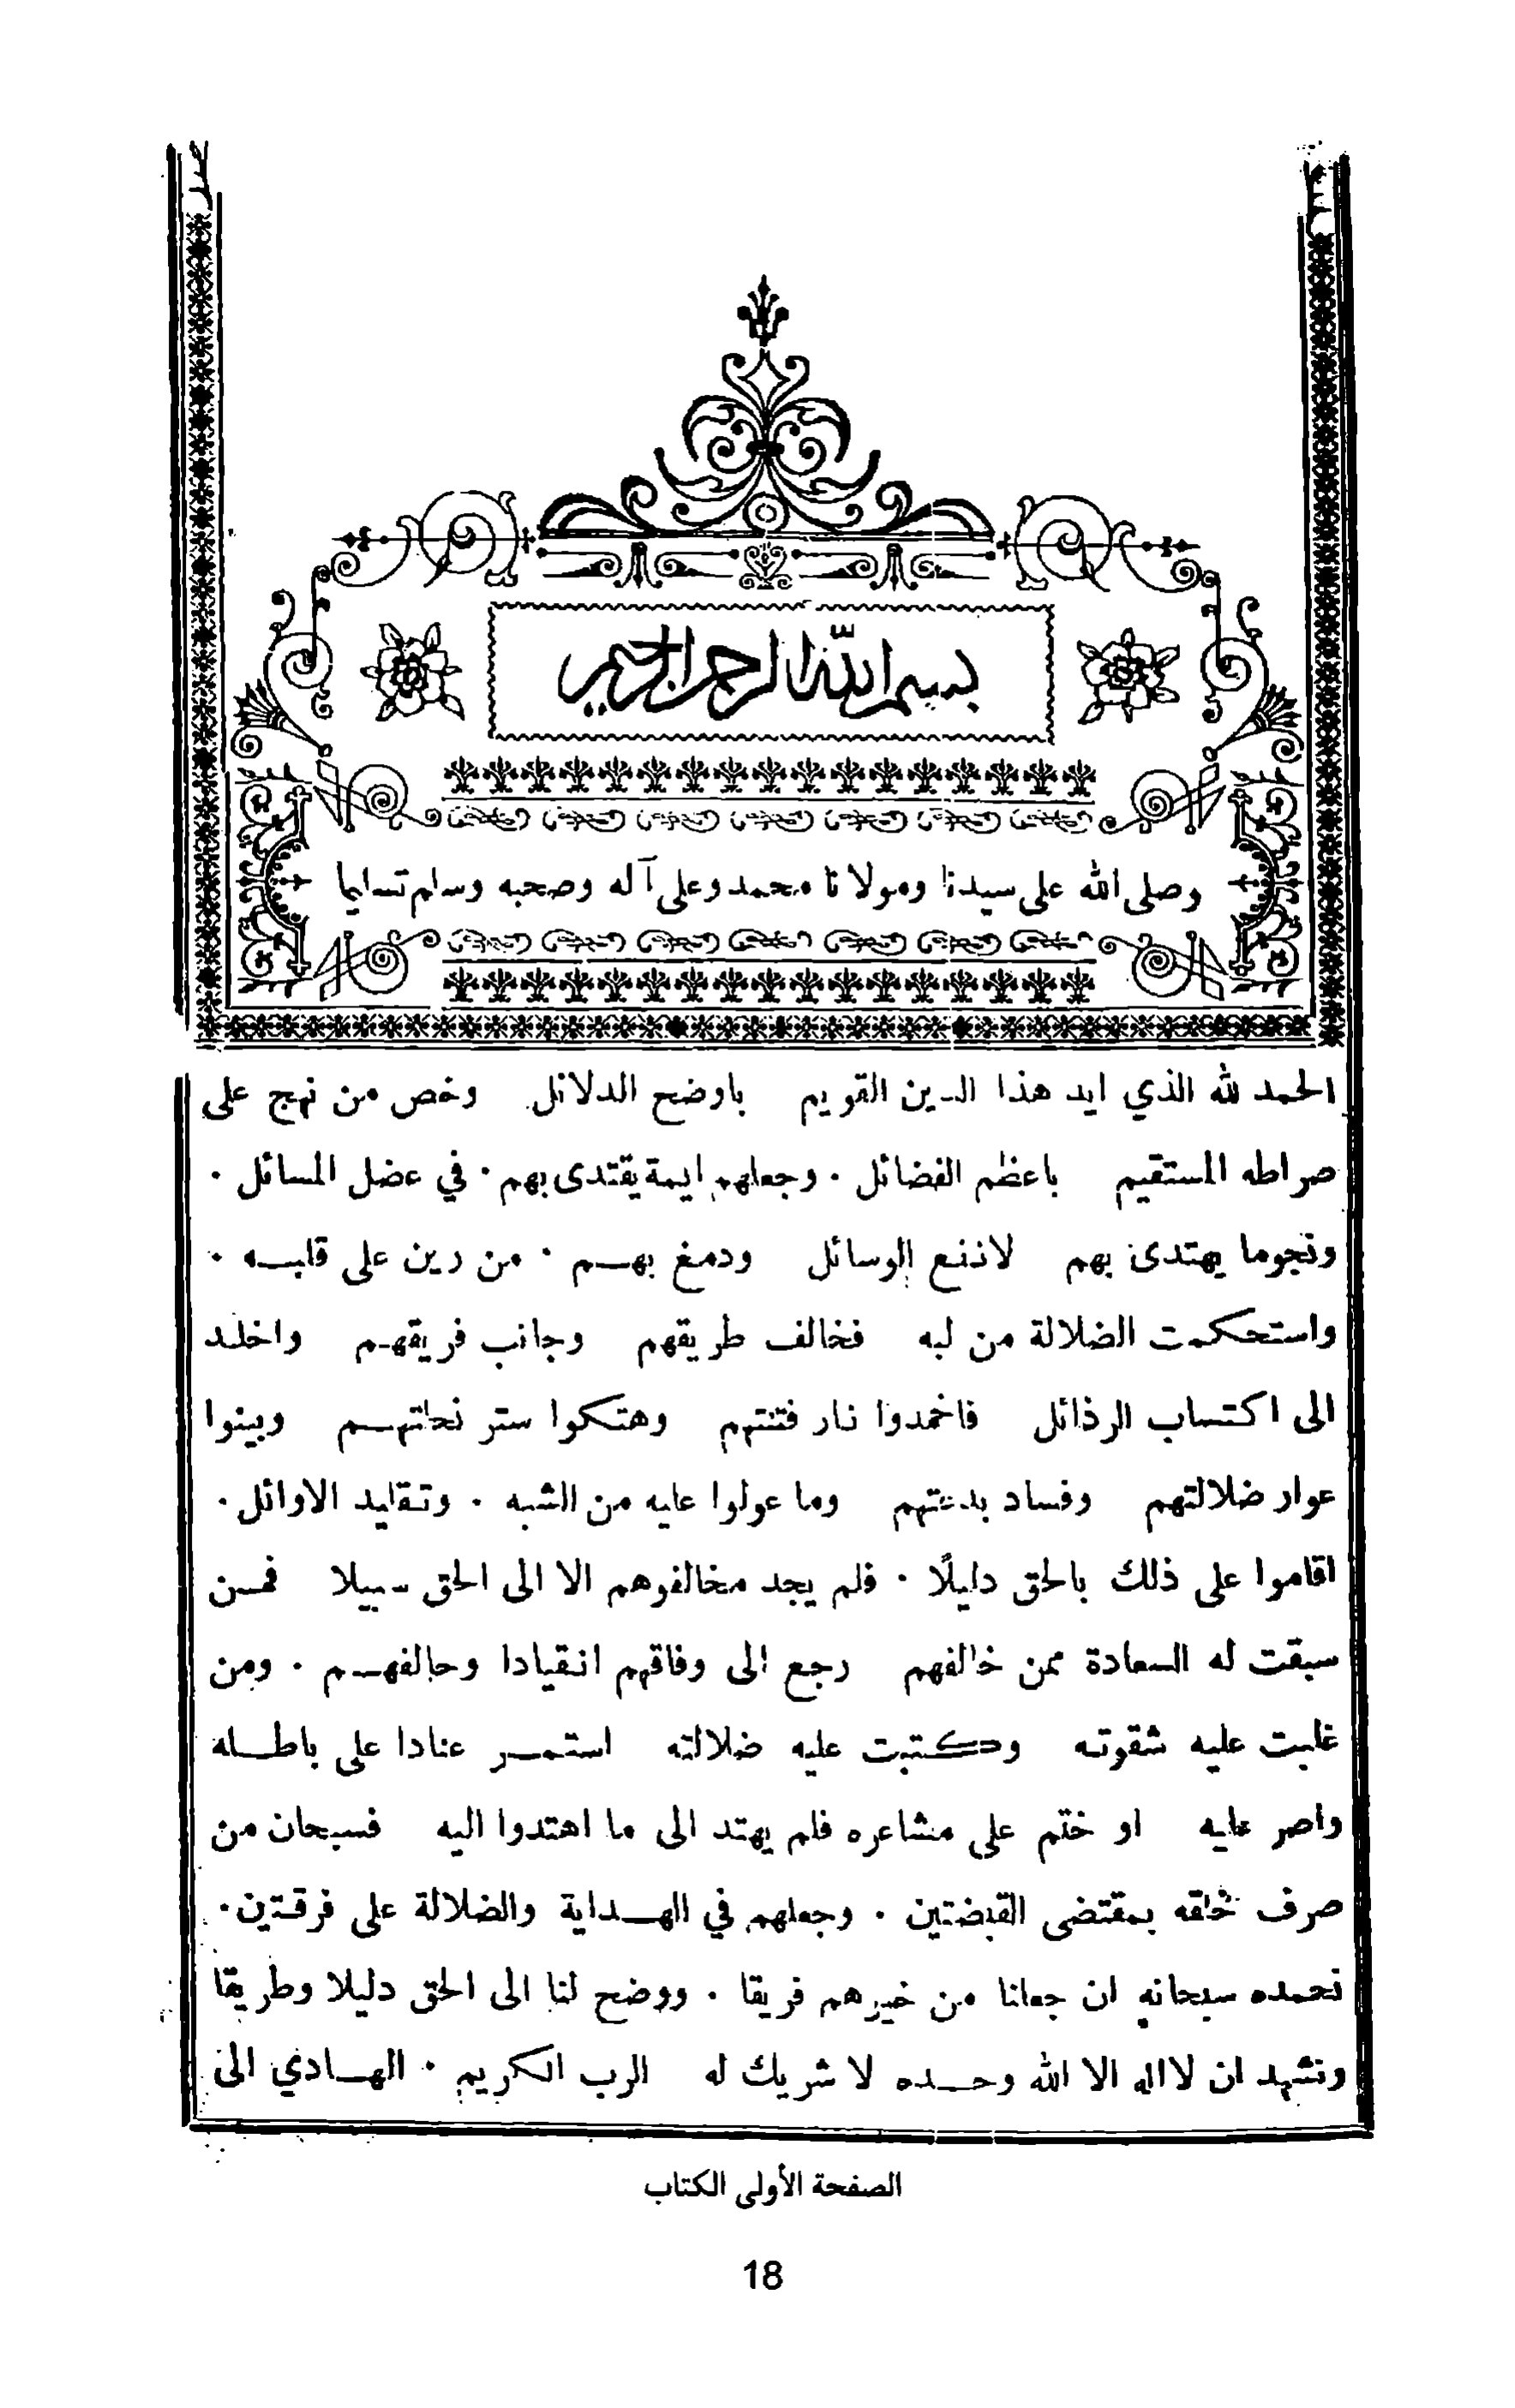 بسم الله الرحمن الرحيم
وصلى الله على سيدنا ومولانا محمد وعلى آله وصحبه وسلم تسليما
الحمد لله الذي ايد هذا الدين القويم باوضح الدلائل وخص من نهج على
صراطه المستقيم باعظم الفضائل · وجعلهم ايمة يقتدى بهم · في عضل المسائل ·
ونجوما يهتدى بهم لانفع الوسائل ودمغ بهم · من رين على قلبه ·
واستحكمت الضلالة من لبه فخالف طريقهم وجانب فريقهم واخلد
الى اكتساب الرذائل فاخمدوا نار فتنتهم وهتكوا ستر نحلتهم وبينوا
عوار ضلالتهم وفساد بدعتهم وما عولوا عليه من الشبه · وتقليد الاوائل ·
اقاموا على ذلك بالحق دليلًا · فلم يجد مخالفوهم الا الى الحق سبيلا فمن
سبقت له السعادة ممن خالفهم رجع الى وفاقهم انقيادا وحالفهم · ومن
غلبت عليه شقوته وكتبت عليه ضلالته استمر عنادا على باطله
واصر عليه او ختم على مشاعره فلم يهتد الى ما اهتدوا اليه فسبحان من
صرف خلقه بمقتضى القبضتين · وجعلهم في الهداية والضلالة على فرقتين ·
نحمده سبحانه ان جعلنا من خيرهم فريقا · ووضح لنا الى الحق دليلا وطريقا
ونشهد ان لااله الا الله وحده لا شريك له الرب الكريم · الهادي الى
الصفحة الأولى الكتاب
18